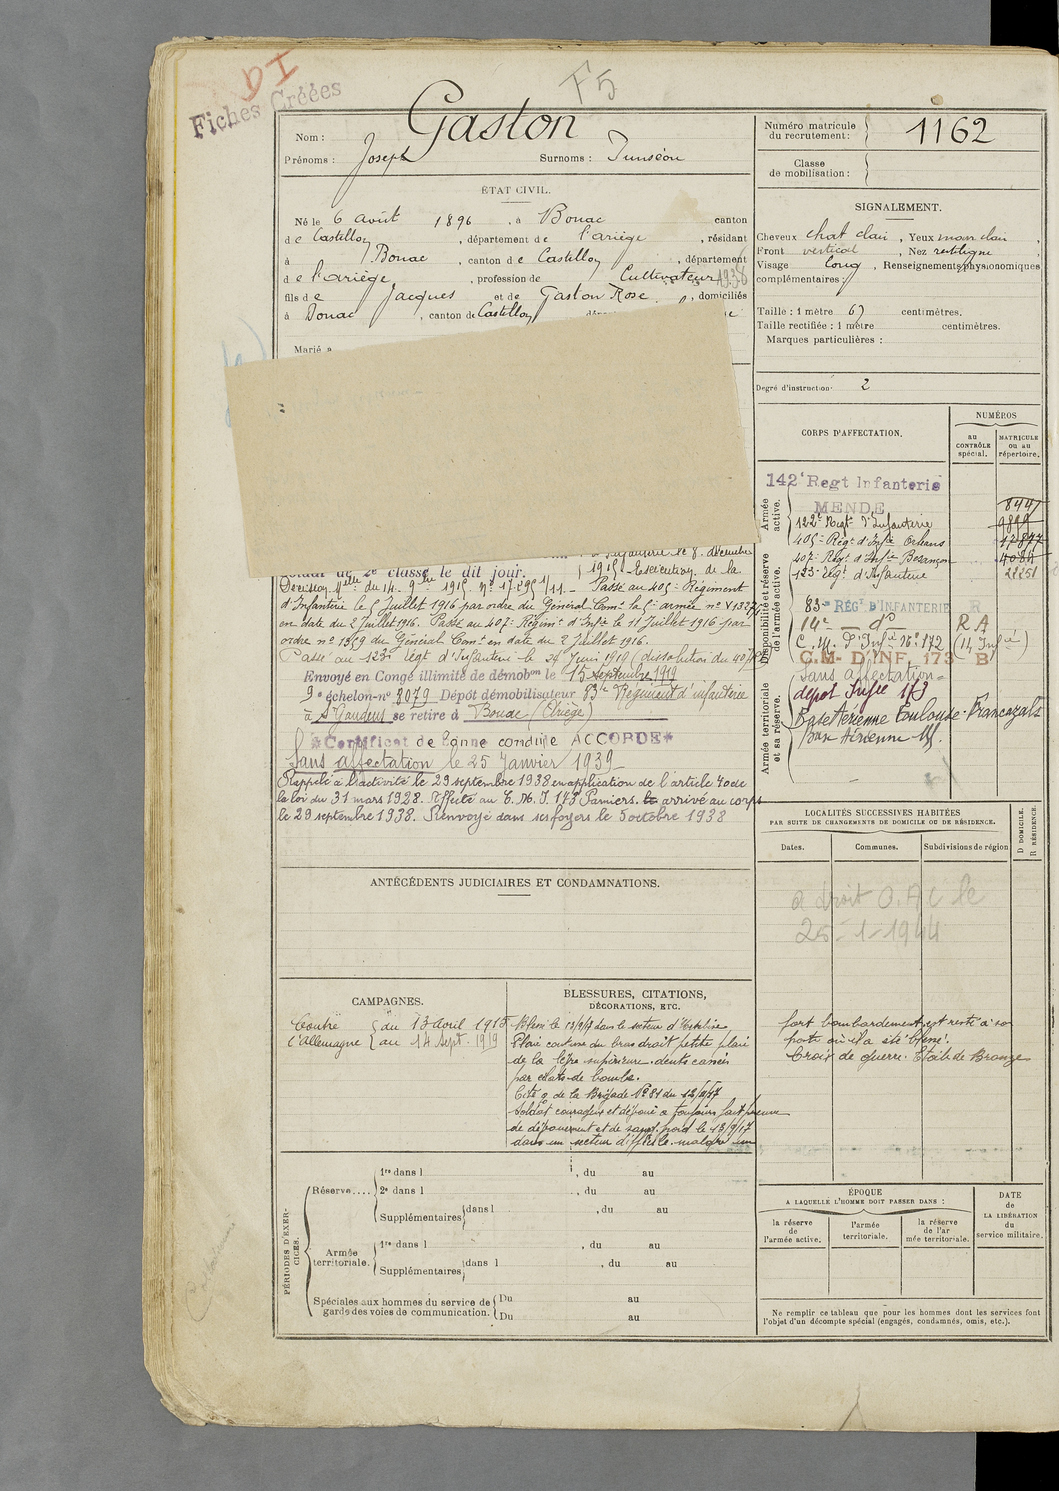 DI
Fiches Créées
F5
Nom : Gaston
Prénoms : Joseph Surnoms :
Numéro matricule du recrutement : 1162
Classe de mobilisation :
ÉTAT CIVIL.
Né le 6 août 1896, à Bonac canton
de Castillon, département de l'ariège, résidant
à Bonac, canton de Castillon, département
de l'ariège, profession de Cultivateur 1938
fils de Jacques et de Gaston Rose, domiciliés
à Bonac, canton de Castillon
Marié à
SIGNALEMENT.
Cheveux chat clair, Yeux marr clair,
Front vertical, Nez rectiligne,
Visage long, Renseignements physionomiques
complémentaires :
Taille : 1 mètre 67 centimètres.
Taille rectifiée : 1 mètre centimètres.
Marques particulières :
Degré d'instruction : 2
CORPS D'AFFECTATION.
NUMÉROS
au CONTRÔLE spécial.
MATRICULE ou au répertoire.
Armée active.
142e Regt Infanterie
MENDE 8447
122e Regt d'Infanterie
405e Régt d'Infie Orléans
407e Régt d'Infie Besançon
123e Régt d'Infanterie
Disponibilité et réserve de l'armée active.
83me RÉGt D'INFANTERIE R
14e do R A
C. M. d'Infie No 172
C.M. D'INF. 173 B
Armée territoriale et sa réserve.
Sans affectation
dépôt Infie 173
Base Aérienne Toulouse-Francazals
Base Aérienne
d'Infanterie le 8 décembre
soldat de 2e classe le dit jour.
1915. Exécution de la
Décision Mlle du 14. 9bre 1915. No Passé au 405e Régiment
d'Infanterie le 5 Juillet 1916 par ordre du Général Comt la armée no
en date du 2 Juillet 1916. Passé au 407e Régimt d'Infie le 11 Juillet 1916 par
ordre no 1359 du Général Comt en date du 2 Juillet 1916.
Passé au 123e Régt d'Infanterie le 24 Juin 1919 (dissolution du 407e)
Envoyé en Congé illimité de démobon le 15 septembre 1919
9e échelon-no 8079 Dépôt démobilisateur 83e Régiment d'infanterie
à St Gaudens se retire à Bonac (Ariège)
Certificat de bonne conduite ACCORDÉ
Sans affectation le 25 Janvier 1939
Rappelé à l'activité le 29 septembre 1938 en application de l'article 40 de
la loi du 31 mars 1928. Affecté au C. M. I. 173 Pamiers. le arrivé au corps
le 29 septembre 1938. Renvoyé dans ses foyers le 5 octobre 1938
LOCALITÉS SUCCESSIVES HABITÉES
PAR SUITE DE CHANGEMENTS DE DOMICILE OU DE RÉSIDENCE.
Dates.
Communes.
Subdivisions de région
D DOMICILE.
R RÉSIDENCE.
a droit O.A.C le
25-1-1944
ANTÉCÉDENTS JUDICIAIRES ET CONDAMNATIONS.
CAMPAGNES.
Contre l'allemagne
du 13 avril 1915
au 14 sept. 1919
BLESSURES, CITATIONS,
DÉCORATIONS, ETC.
Blessé le 13/9/17 dans le secteur
Plaie contuse du bras droit petite plaie
de la lèvre supérieure. dents cassées
par éclats de bombe.
Cité o. de la Brigade No 81 du
Soldat courageux et dévoué a toujours fait preuve
de dévouement et de sang froid le 13/9/17
dans un secteur difficile malgré un
fort bombardement est resté à son
poste où il a été blessé.
Croix de guerre. Etoile de Bronze
PÉRIODES D'EXERCICES.
Réserve....
1re dans l , du au
2e dans l , du au
Supplémentaires dans l , du au
Armée territoriale.
1re dans l , du au
Supplémentaires dans l , du au
Spéciales aux hommes du service de garde des voies de communication.
Du au
Du au
ÉPOQUE
A LAQUELLE L'HOMME DOIT PASSER DANS :
la réserve de l'armée active.
l'armée territoriale.
la réserve de l'armée territoriale.
DATE de LA LIBÉRATION du service militaire.
Ne remplir ce tableau que pour les hommes dont les services font
l'objet d'un décompte spécial (engagés, condamnés, omis, etc.).